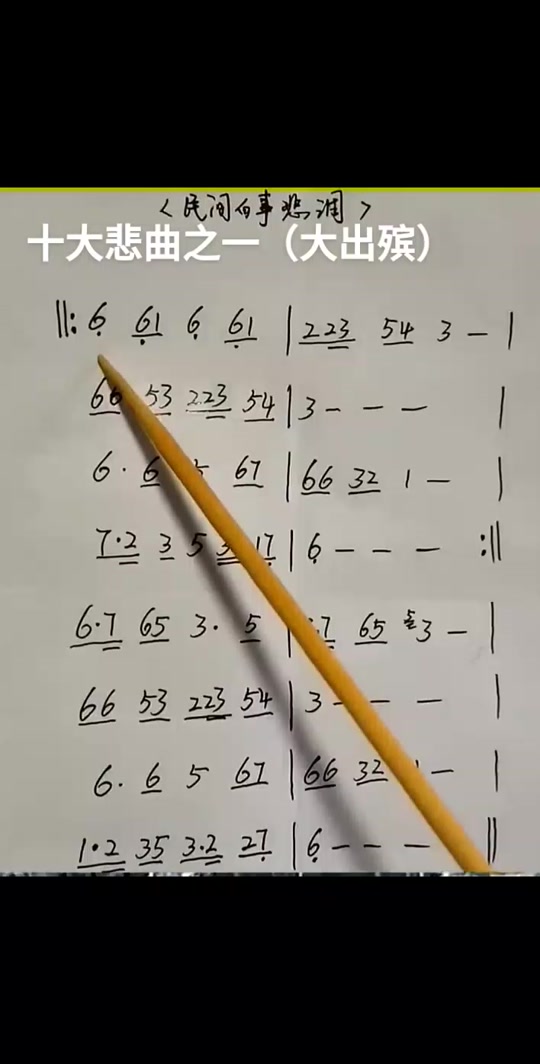 <民间白事悲调>
十大悲曲之一（大出殡）
||: 6 61 6 61 | 223 54 3 - |
66 53 2.23 54 | 3 - - - |
6 · 6 67 | 66 32 1 - |
7·2 3 5 3 17 | 6 - - - :||
6·7 65 3· 5 | 7 65 5 3 - |
66 53 223 54 | 3 - - - |
6· 6 5 67 | 66 32 - |
1·2 35 3·2 27 | 6 - - - ||